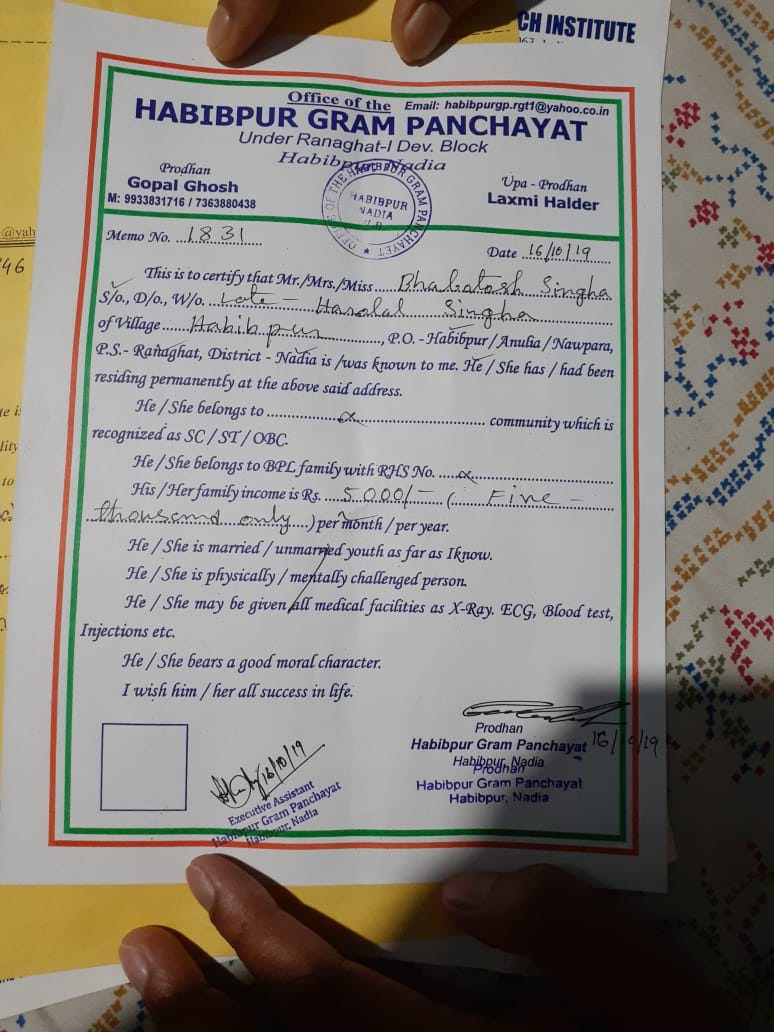 CH INSTITUTE
Office of the Email: habibpurgp.rgt1@yahoo.co.in
HABIBPUR GRAM PANCHAYAT
Under Ranaghat-I Dev. Block
Habibpur, Nadia
OFFICE OF THE HABIBPUR GRAM PANCHAYET
HABIBPUR
NADIA
Prodhan
Gopal Ghosh
M: 9933831716 / 7363880438
Upa - Prodhan
Laxmi Halder
Memo No. 1831
Date 16/10/19
This is to certify that Mr./Mrs./Miss Bhabatosh Singha
S/o., D/o., W/o. Late - Haralal Singha
of Village Habibpur, P.O. - Habibpur / Anulia / Nawpara,
P.S.- Ranaghat, District - Nadia is /was known to me. He / She has / had been
residing permanently at the above said address.
He / She belongs to community which is
recognized as SC / ST / OBC.
He / She belongs to BPL family with RHS No.
His / Her family income is Rs. 5000/- ( Five -
thousand only ) per month / per year.
He / She is married / unmarried youth as far as Iknow.
He / She is physically / mentally challenged person.
He / She may be given all medical facilities as X-Ray. ECG, Blood test,
Injections etc.
He / She bears a good moral character.
I wish him / her all success in life.
Prodhan
Habibpur Gram Panchayat 16/10/19
Habibpur, Nadia
Prodhan
Habibpur Gram Panchayat
Habibpur, Nadia
16/10/19
Executive Assistant
Habibpur Gram Panchayat
Habibpur, Nadia